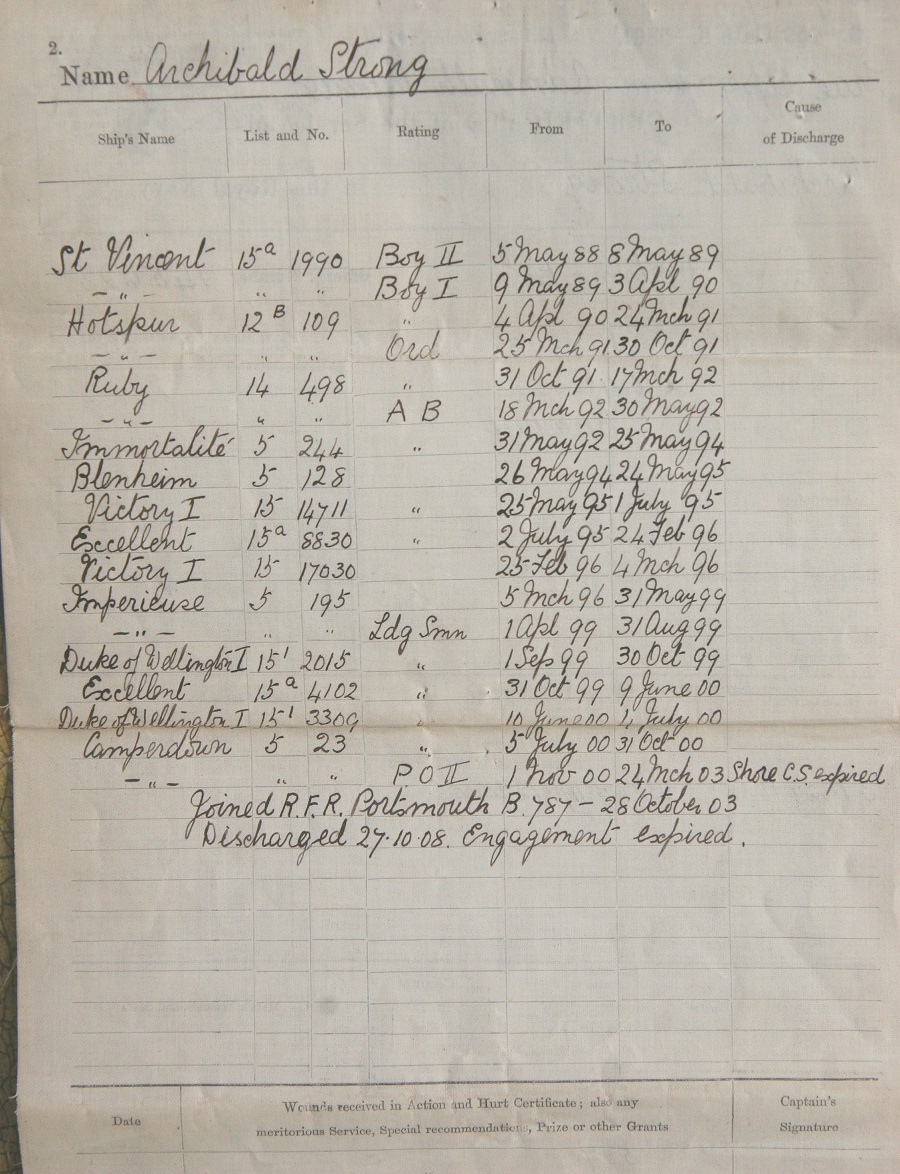 2.
Name Archibald Strong
Ship's Name List and No. Rating From To Cause of Discharge
St Vincent 15a 1990 Boy II 5 May 88 8 May 89
— " — " " Boy I 9 May 89 3 Apl 90
Hotspur 12 B 109 " 4 Apl 90 24 Mch 91
— " — " " Ord 25 Mch 91 30 Oct 91
Ruby 14 498 " 31 Oct 91 17 Mch 92
— " — " " A B 18 Mch 92 30 May 92
Immortalité 5 244 " 31 May 92 25 May 94
Blenheim 5 128 26 May 94 24 May 95
Victory I 15 14711 " 25 May 95 1 July 95
Excellent 15a 8830 " 2 July 95 24 Feb 96
Victory I 15 17030 25 Feb 96 4 Mch 96
Imperieuse 5 195 5 Mch 96 31 May 99
— " — " " Ldg Smn 1 Apl 99 31 Aug 99
Duke of Wellington I 15' 2015 " 1 Sep 99 30 Oct 99
Excellent 15a 4102 " 31 Oct 99 9 June 00
Duke of Wellington I 15' 3309 " 10 June 00 4 July 00
Camperdown 5 23 " 5 July 00 31 Oct 00
— " — " " P O II 1 Nov 00 24 Mch 03 Shore C.S. expired
Joined R.F.R. Portsmouth B. 787 – 28 October 03
Discharged 27.10.08. Engagement expired.
Date Wounds received in Action and Hurt Certificate; also any Captain's
meritorious Service, Special recommendations, Prize or other Grants Signature